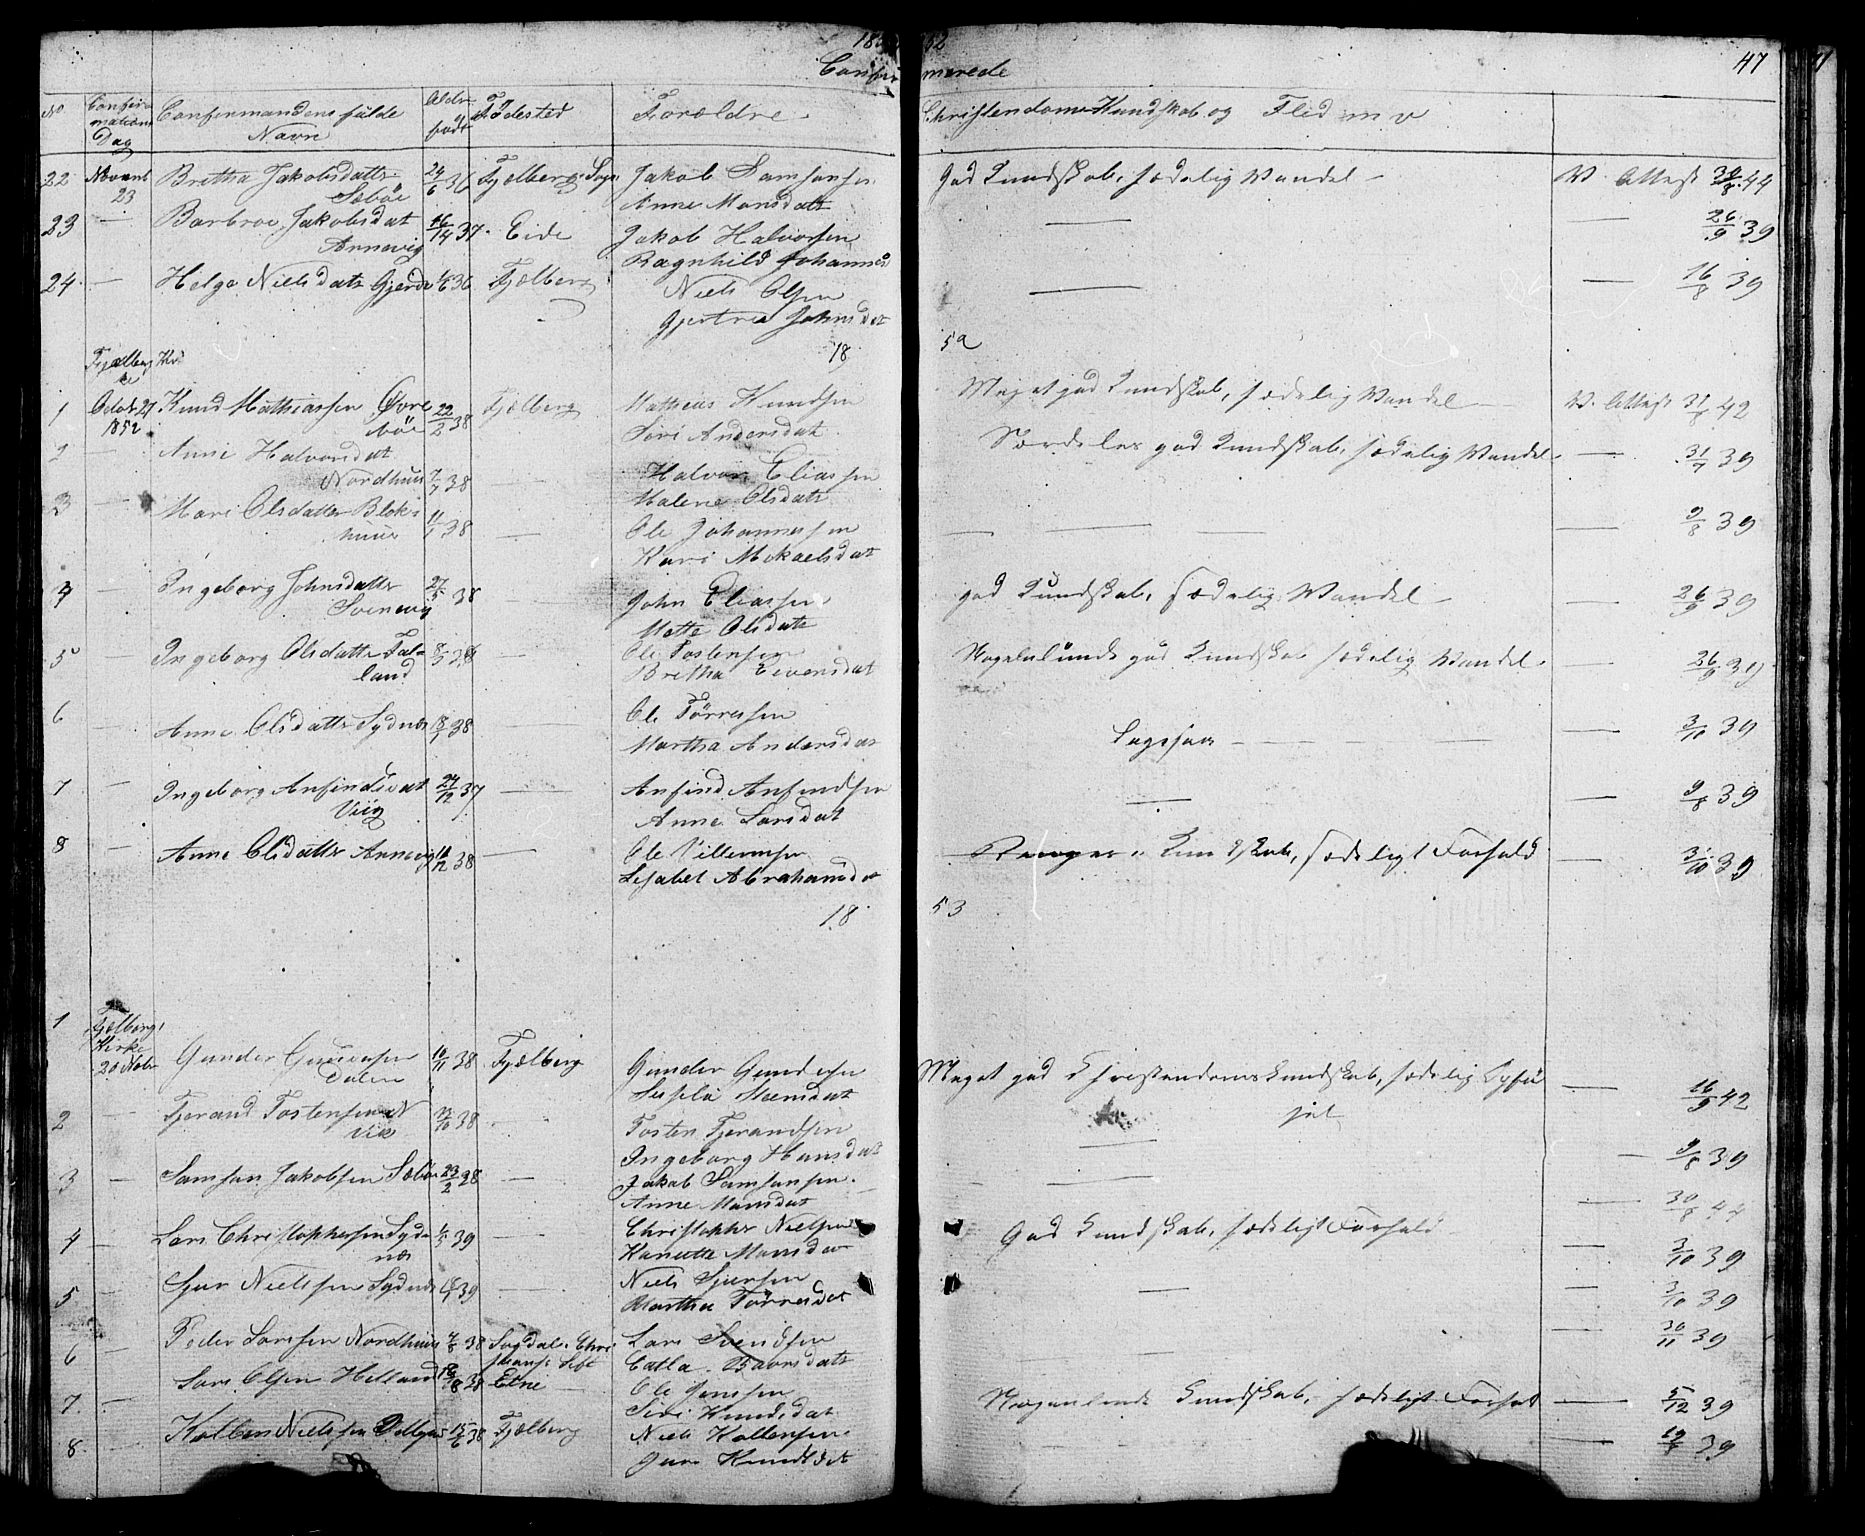 1852
Confirmerede 47
No Confirmations Dag Confirmandens fulde Navn Alder født Fødested Forældre Christendoms Kundskab og Flid m v
22 Novemb 23 Bretha Jakobsdatter Sæbøe 24/6 36 Fjælbergs Sogn Jakob Samsonsen Anne Monsdatt God Kundskab, sædelig Vandel V. Attest 30/8 44
23 — Barbroe Jakobsdat Arnevig 16/14 37 Eide Jakob Halvorsen Ragnhild Johannesd — — 26/9 39
24 — Helga Nielsdatt Gjerde 1/6 36 Fjælberg Niels Olsen Gjertrud Johnsdat — — 16/8 39
18 52
Fjælberg Kirke
1 Octob 27 1852 Knud Mathiassen Øvrebøe 22/2 38 Fjælberg Mathias Knudsen Siri Andersdat Meget god Kundskab, sædelig Vandel V. Attest 31/8 42
2 — Anne Halvorsdat Nordhuus 7/7 38 — Halvor Eliassen Malene Olsdatt Særdeles god Kundskab, sædelig Vandel — 31/7 39
3 — Mari Olsdatter Blokhuus 11/1 38 — Ole Johannessen Kari Mikaelsdat — — — 9/8 39
4 — Ingeborg Johnsdatter Svinevig 27/5 38 — John Eliassen Mette Olsdatt god Kundskab, sædelig Vandel — 26/9 39
5 — Ingeborg Olsdatter Tatland 8/5 38 — Ole Tostensen Bretha Eivensdat Nogenlunde god Kundskab sædelig Vandel — 26/9 39
6 — Anne Olsdatter Sydnæs 18/1 38 — Ole Tørresen Martha Andersdat Ligesaa — — 3/10 39
7 — Ingeborg Anfindsdat Viig 24/12 37 — Anfind Anfindsen Anne Larsdat — — 9/8 39
8 — Anne Olsdatter Annevig 16/12 38 — Ole Villumsen Lisabet Abrahamsdat Kundskab, sædeligt Forhold — 3/10 39
18 53
1 Fjælbergs Kirke 20 Nobr Gunder Gundersen Dalen 16/11 38 Fjælberg Gunder Gundersen Sissela Monsdat Meget god Christendomskundskab, sædelig Opførsel — 16/9 42
2 — Fjerand Tostensen Vik 12/10 38 — Tosten Fjerandsen Ingeborg Hansdat — — 9/8 39
3 — Samson Jakobsen Sæbøe 23/2 38 — Jakob Samsonsen Anne Monsdat — — 30/8 44
4 — Lars Christophersen Sydnæs 1/3 39 — Christopher Nielsen Karutta Monsdat God Kundskab, sædeligt Forhold — 3/10 39
5 — Sjur Nielsen Sydnæs 6/1 39 — Niels Sjursen Martha Tørresdat — — 3/10 39
6 — Peder Larssen Nordhuus 4/8 38 Sogdal. Christians. Stift Lars Svendsen Catla Baarsdatt — — 30/11 39
7 — Lars Olsen Helland 18/8 38 Etne Ole Jenssen Siri Knudsdat Nogenlunde Kundskab, sædeligt Forhold — 5/12 39
8 — Kolben Nielsen 15/6 38 Fjælberg Niels Kolbensen Guri Knudsdat — 12/8 39